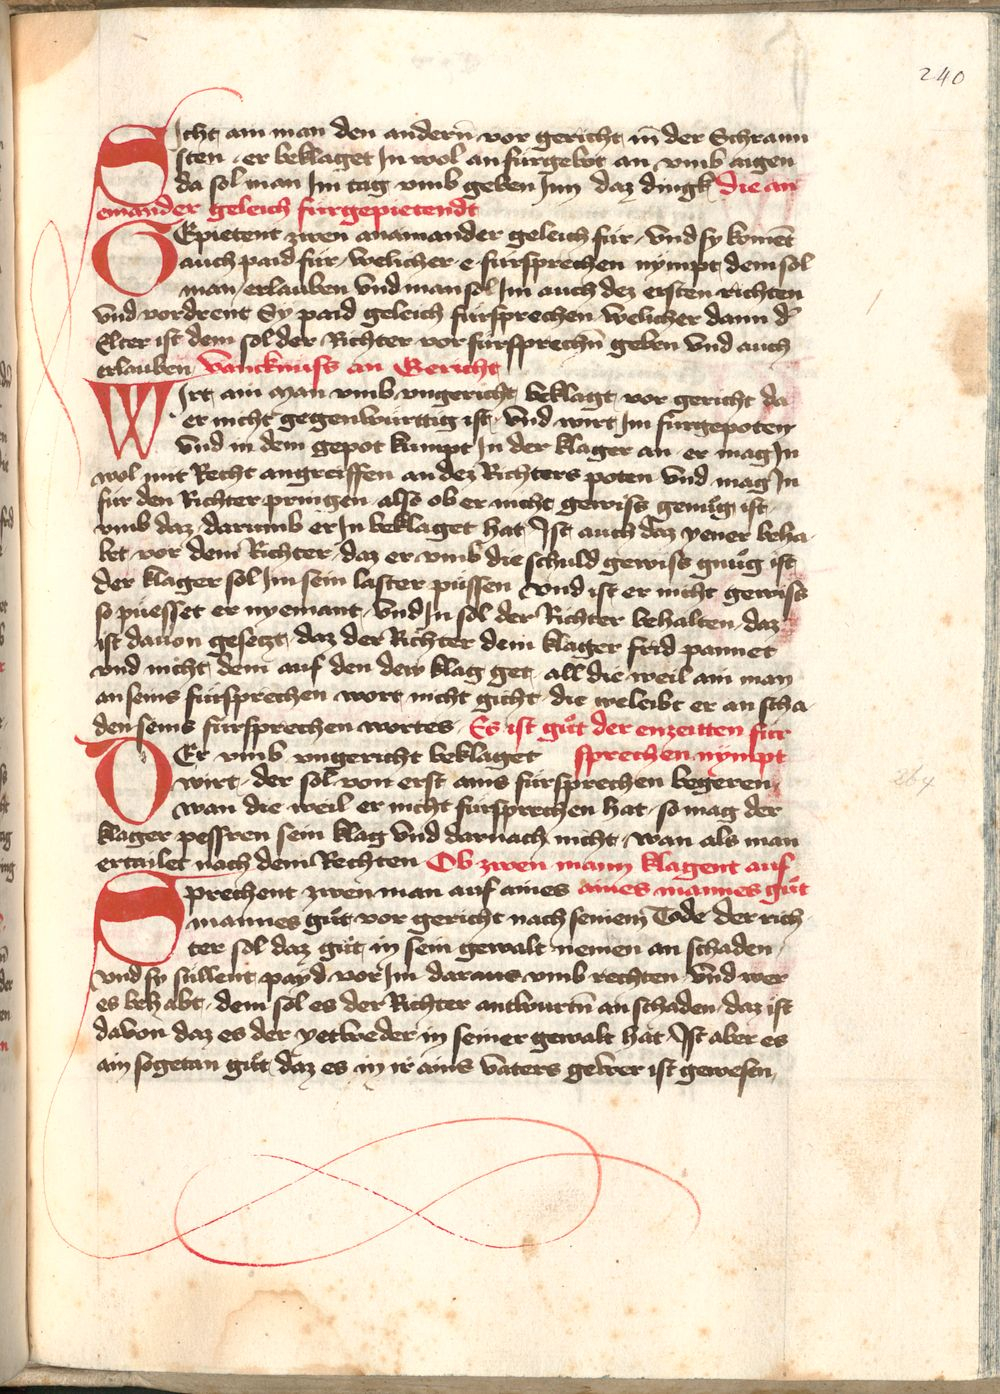 240
Sicht ain man den andern̄ vor gericht in̄ der Schrann
sten er beklaget In wol an fürgebot an vmb aigen
da sol man Im tag vmb geben Inn daz dingk die an
einander geleich fürgepietendt
GEpietent zwen anainander geleich für vnd sy komēt
auch paid für welicher e fürsprechen nympt dem sol
man erlauben vnd man sol Im auch dez ersten richten
vnd vordrent Sy paid geleich fürsprechen welicher dann d͛
Elter ist dem sol der Richter vor fürsprechn̄ geben vnd auch
erlauben Vanckniss an Gericht
WIrt ain man vmb vngericht beklagt vor gericht da
er nicht gegenwürttig ist vnd wirt Im fürgepoten
vnd in dem gepot kumpt In der klager an er mag In
wol mit Recht angreiffen an dez Richters poten vnd mag In
für den Richter pringen also ob er nicht gewiss genuͦg ist
vmb daz darumb er In beklaget hat Ist auch daz yener beha
bet vor dem Richter daz er vmb die schuld gewiss gnuͦg ist
der klager sol Im sein laster püssen vnd ist er nicht gewiss
so püesset er nyemant vnd In sol der Richter behalten daz
ist dauon gesetzt daz der Richter dem klager frid pannet
vnd nicht dem auf den dew klag get all die weil ain man
an seins fürsprechen wort nicht gicht die weleibt er an scha
den seins fürsprechen wortes Es ist guͦt der enzeitten für
DEr vmb vngericht beklaget sprechen nympt
wirt der sol von erst ains fürsprechen begeren
wan die weil er nicht fürsprechen hat so mag der
klager pessren sein klag vnd darnach nicht wan als man
ertailet nach dem Rechten Ob zwen mann klagent auf
SPrechent zwen man auf aines aines mannes guͦt
mannes guͦt vor gericht nach seinem Tode der rich
ter sol daz guͦt in sein gewalt nemen an schaden
vnd sy süllent payd vor Im daraus vmb rechten vnd wer
es behabt dem sol es der Richter antwurtn̄ an schaden daz ist
davon daz es der yetweder in seiner gewalt hat Ist aber es
ain sogetan guͦt daz es in ir ains vaters gewer ist gewesen
264